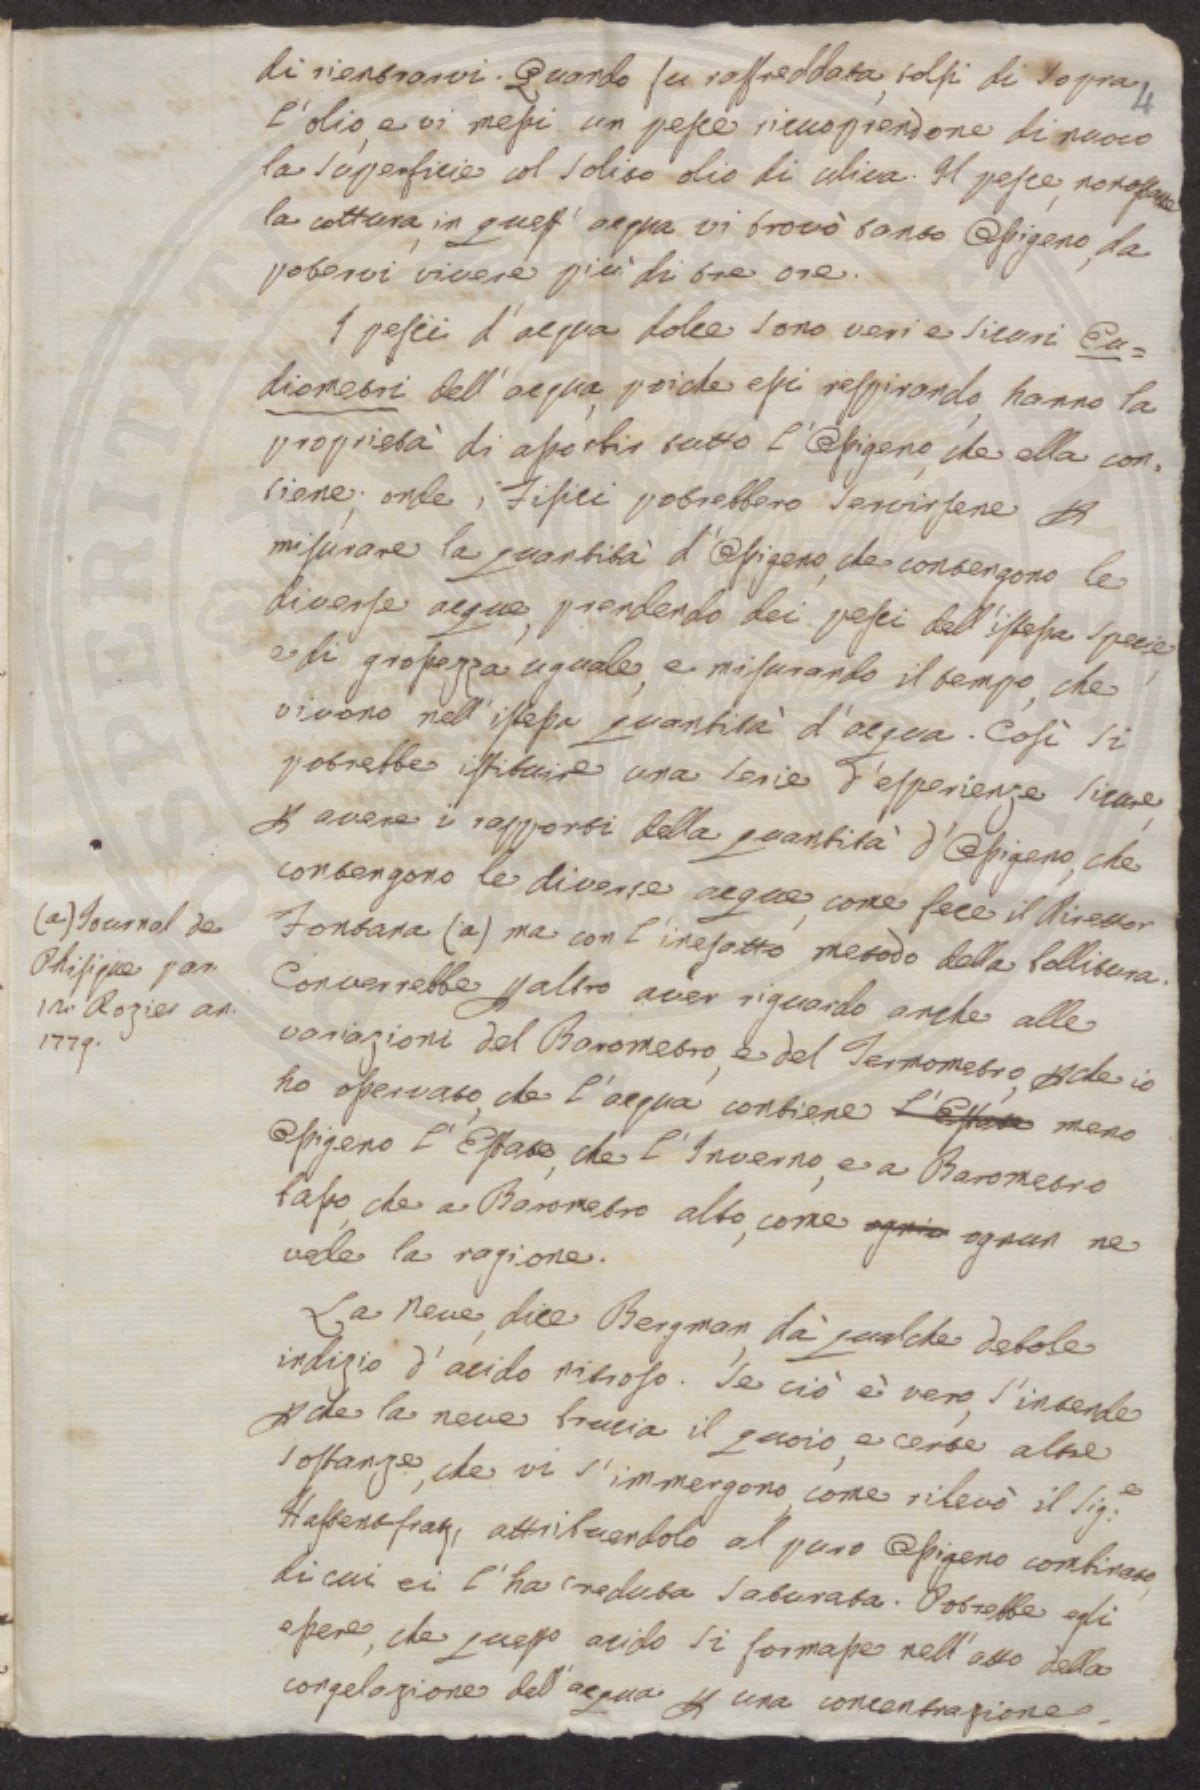 4
di rientrarvi. Quando fu raffreddata, tolsi di sopra
l'olio, e vi messi un pesce ricuoprendone di nuovo
la superficie col solito olio di uliva. Il pesce, nonostante
la cottura, in quest' acqua vi trovò tanto Ossigeno, da
potervi vivere più di tre ore.
I pesci d'acqua dolce sono veri e sicuri Eu=
diometri dell'acqua, poiche essi respirando, hanno la
proprietà di assorbir tutto l'Ossigeno, che ella con-
tiene; onde i Fisici potrebbero servirsene p
misurare la quantità d'Ossigeno, che contengono le
diverse acque, prendendo dei pesci dell'istessa specie,
e di grossezza uguale, e misurando il tempo, che
vivono nell'istessa quantità d'acqua. Così si
potrebbe istituire una serie d'esperienze sicure,
p avere i rapporti della quantità d'Ossigeno, che
contengono le diverse acque, come fece il Direttor
Fontana (a) ma con l'inesatto metodo della bollitura.
Converrebbe paltro aver riguardo anche alle
variazioni del Barometro, e del Termometro, pche io
ho osservato, che l'acqua contiene l'Estate meno
Ossigeno l'Estate, che l'Inverno, e a Barometro
basso, che a Barometro alto, come ogniu ognun ne
vede la ragione.
La Neve, dice Bergman, dà qualche debole
indizio d'acido nitroso. Se ciò è vero, s'intende
pche la neve brucia il quoio, e certe altre
sostanze, che vi s'immergono, come rilevò il Sig.e
Hassenfratz, attribuendolo al puro Ossigeno combinato,
di cui ei l'ha creduta saturata. Potrebbe egli
essere, che questo acido si formasse nell'atto della
congelazione dell'acqua p una concentrazione
(a) Journal de
Phisique par
Mr. Rozier an.
1779.